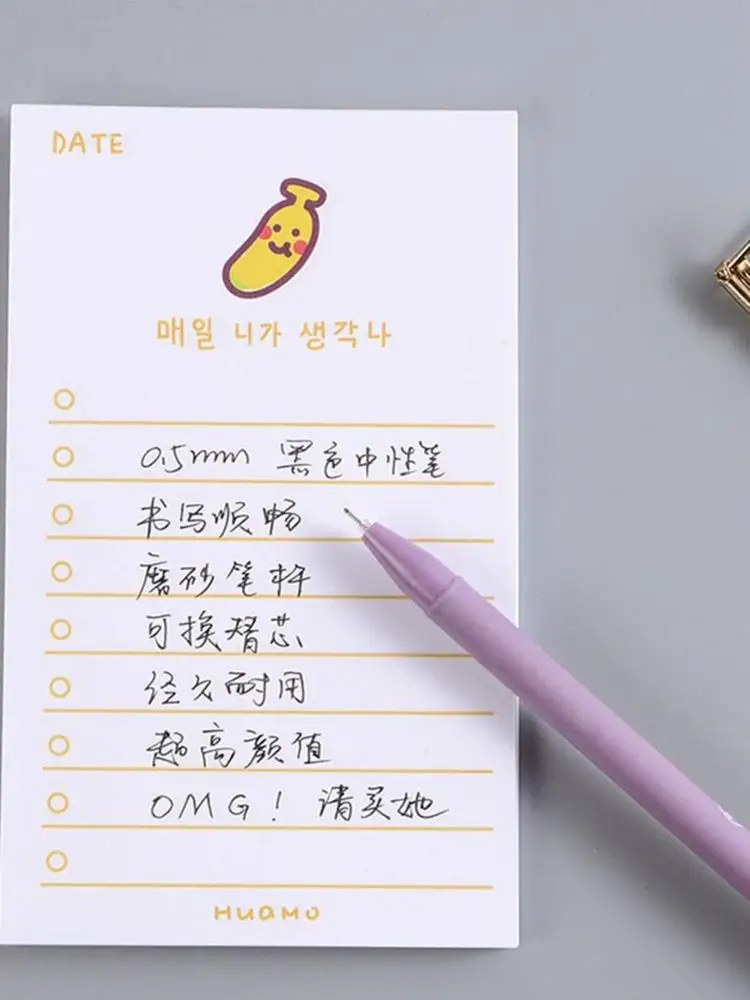 DATE
매일 니가 생각나
0.5mm 黑色中性笔
书写顺畅
磨砂笔杆
可换替芯
经久耐用
超高颜值
OMG! 请买她
HUAMO